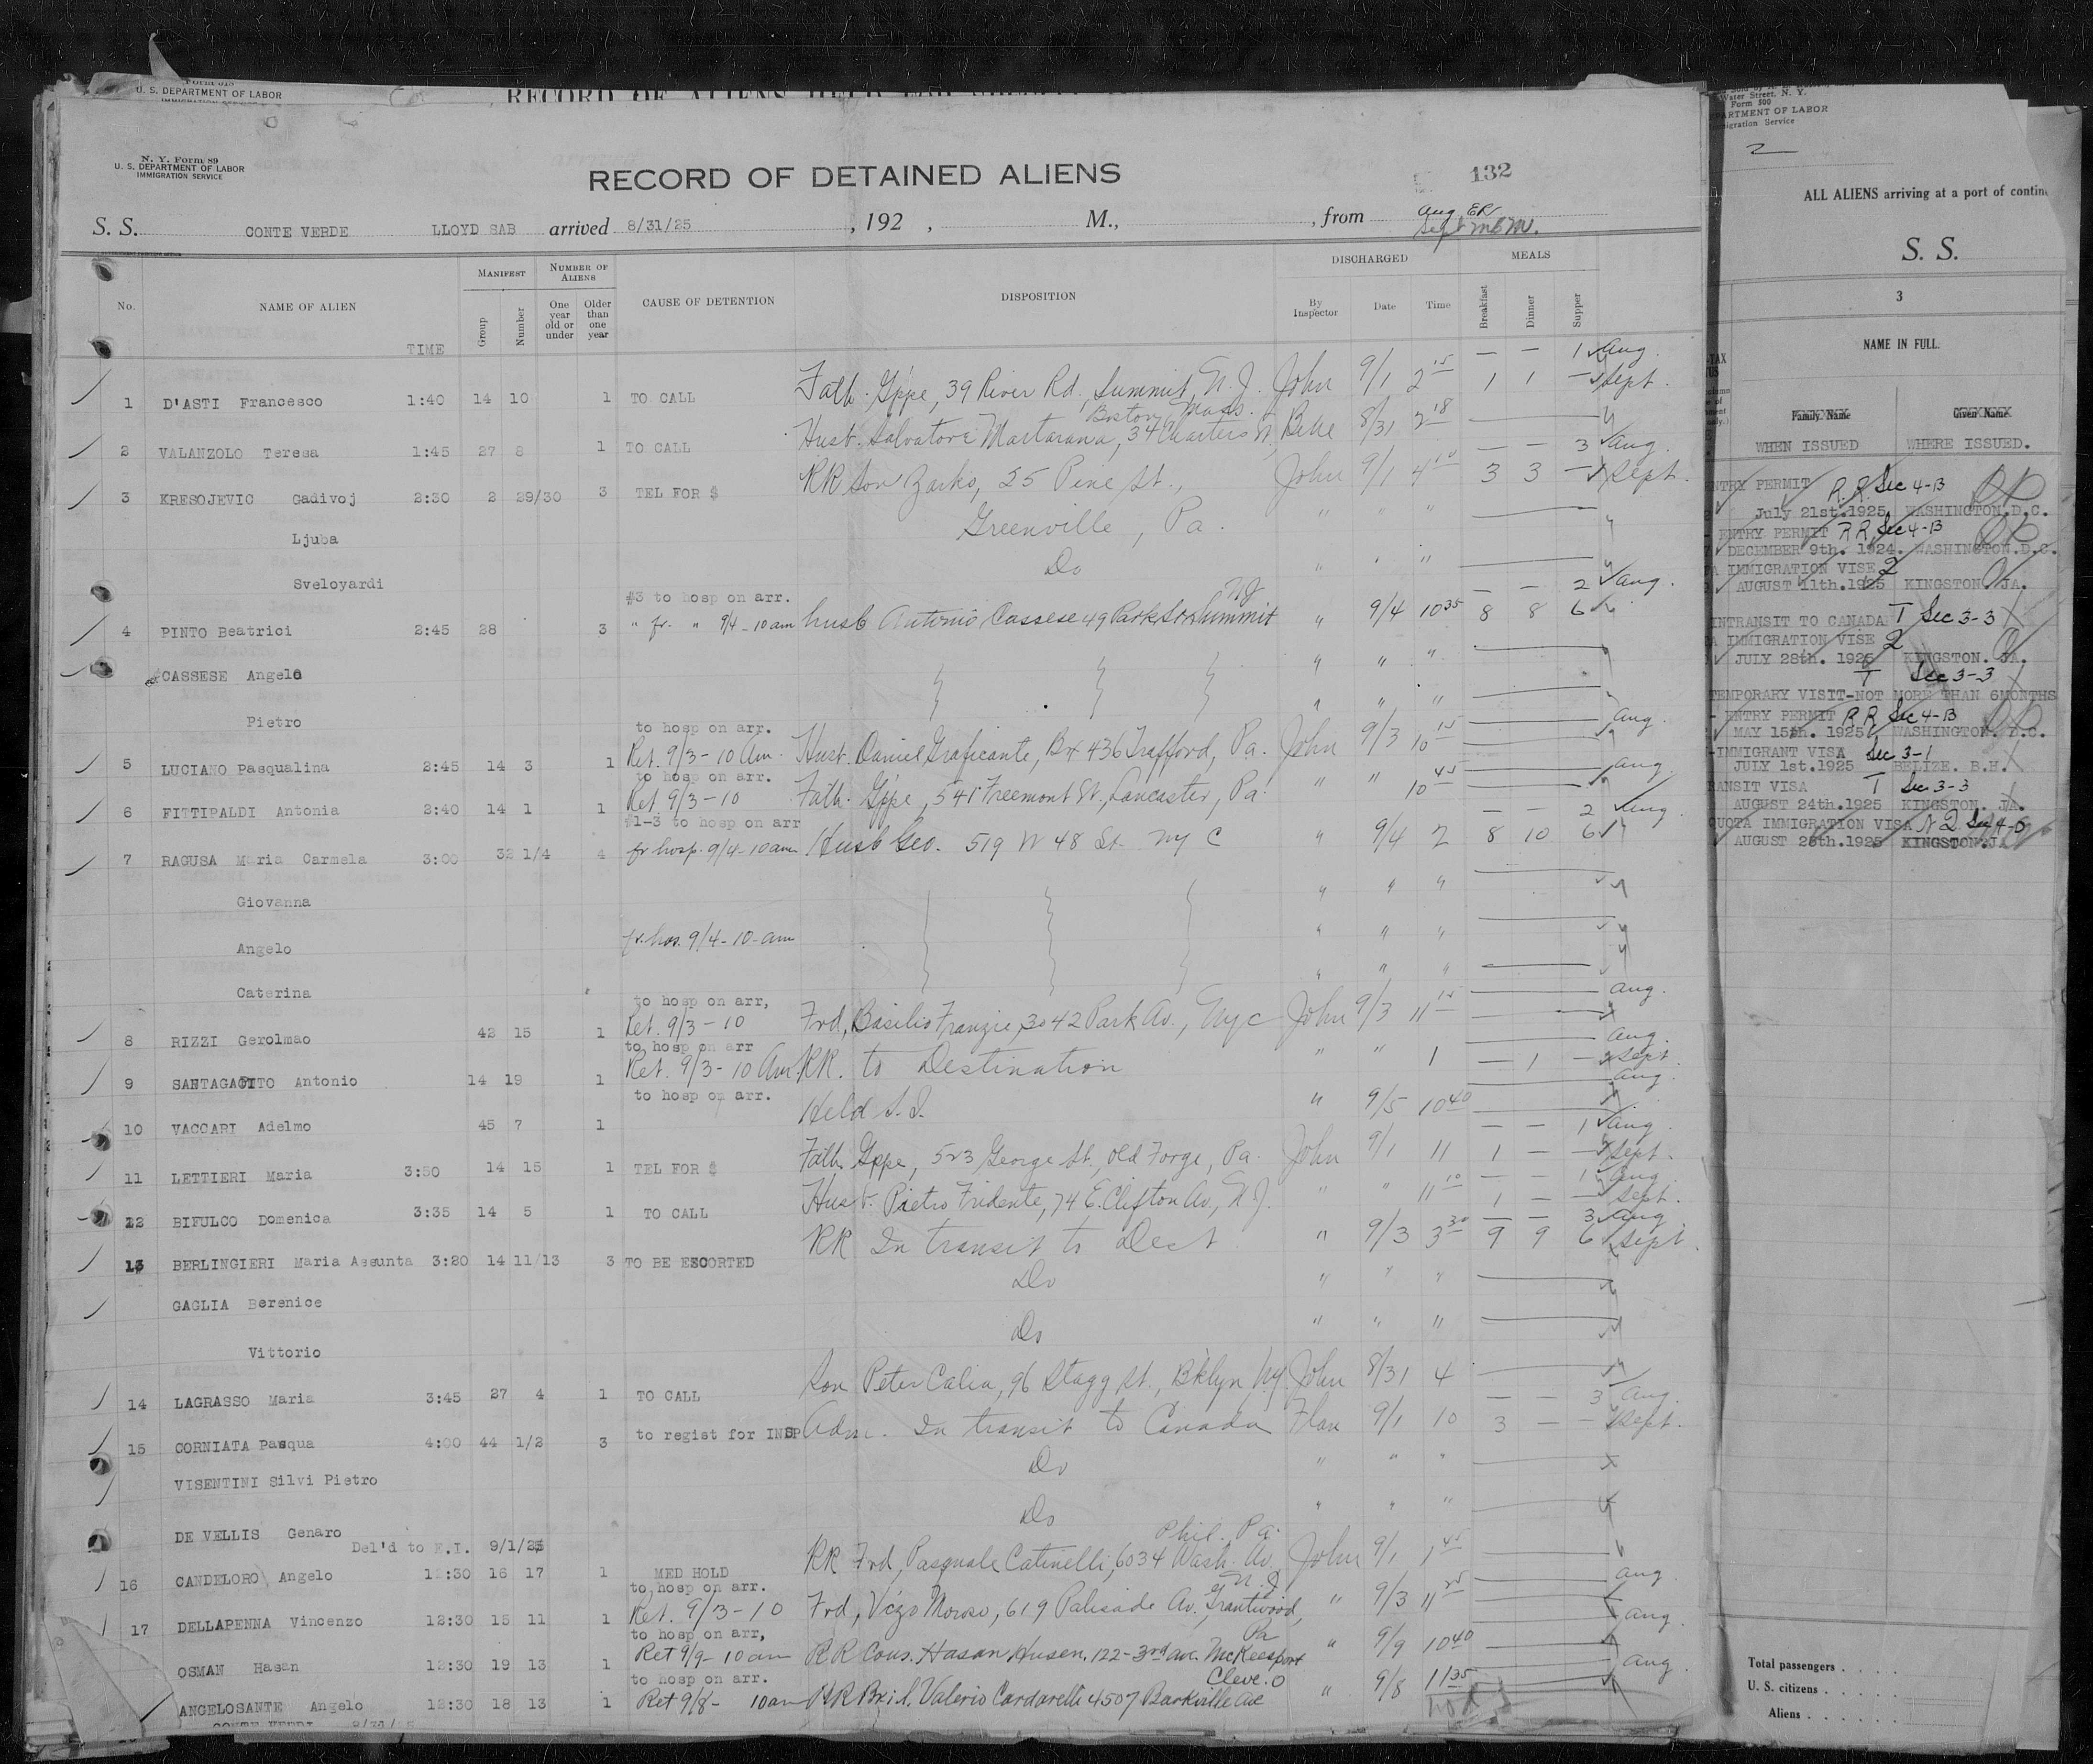 U. S. DEPARTMENT OF LABOR
N. Y. Form 89
U. S. DEPARTMENT OF LABOR
IMMIGRATION SERVICE
RECORD OF DETAINED ALIENS
132
S. S. CONTE VERDE LLOYD SAB arrived 8/31/25, 192 , M., , from
Aug ER
No. NAME OF ALIEN TIME MANIFEST Group Number NUMBER OF ALIENS One year old or under Older than one year CAUSE OF DETENTION DISPOSITION DISCHARGED By Inspector Date Time MEALS Breakfast Dinner Supper
— — 1 Aug.
1 D'ASTI Francesco 1:40 14 10 1 TO CALL Fath. G'ppe, 39 River Rd, Summit, N.J. John 9/1 2 15 1 1 — Sept.
Boston, Mass.
2 VALANZOLO Teresa 1:45 27 8 1 TO CALL Husb. Salvatore Martarana, 34 Charters St, 8/31 2 18
— — 3 Aug.
3 KRESOJEVIC Gadivoj 2:30 2 29/30 3 TEL FOR $ RR Son Zarko, 25 Pine St., John 9/1 4 10 3 3 — Sept.
Ljuba Greenville, Pa. " " "
Sveloyardi Do " " "
#3 to hosp on arr. NJ — — 2 Aug.
4 PINTO Beatrici 2:45 28 3 " fr. " 9/4-10am husb Antonio Cassese 49 Park Summit " 9/4 10 35 8 8 6
CASSESE Angelo " " "
Pietro " " "
to hosp on arr. Aug.
5 LUCIANO Pasqualina 2:45 14 3 1 Ret. 9/3-10 Am. Husb. Daniel Graficante, Bx 436 Trafford, Pa. John 9/3 10 15
to hosp on arr. Aug.
6 FITTIPALDI Antonia 2:40 14 1 1 Ret 9/3-10 Fath. G'ppe, 541 Freemont St., Lancaster, Pa. " " 10 45
#1-3 to hosp on arr — — 2 Aug
7 RAGUSA Maria Carmela 3:00 32 1/4 4 fr hosp. 9/4-10am Husb Geo. 519 W 48 St. NY C " 9/4 2 8 10 6
Giovanna " " "
Angelo fr. hos. 9/4-10-am " " "
Caterina " " "
to hosp on arr, Aug.
8 RIZZI Gerolmao 42 15 1 Ret. 9/3-10 Frd, Basilio Franzie, 3042 Park Av., Nyc John 9/3 11 15
to hosp on arr Aug.
9 SANTAGATITO Antonio 14 19 1 Ret. 9/3-10 Am. RR. to Destination " " 1 — 1 — Sept
to hosp on arr. Aug.
10 VACCARI Adelmo 45 7 1 Held S.I. " 9/5 10 40
— — 1 Aug.
11 LETTIERI Maria 3:50 14 15 1 TEL FOR $ Fath G'ppe, 523 George St., Old Forge, Pa. John 9/1 11 1 — — Sept.
— — 1 Aug
12 BIFULCO Domenica 3:35 14 5 1 TO CALL Husb. Pietro Tridente, 74 E. Clifton Av., N.J. " " 11 10 1 — — Sept.
— — 3 Aug
13 BERLINGIERI Maria Assunta 3:20 14 11/13 3 TO BE ESCORTED RR In transit to Dest " 9/3 3 30 9 9 6 Sept.
GAGLIA Berenice Do " " "
Vittorio Do " " "
14 LAGRASSO Maria 3:45 27 4 1 TO CALL Son Peter Calia, 96 Stagg St., B'klyn, Ny. John 8/31 4
— — 3 Aug.
15 CORNIATA Pasqua 4:00 44 1/2 3 to regist for INSP Adm. In transit to Canada Flan 9/1 10 3 — — Sept.
VISENTINI Silvi Pietro Do " " "
DE VELLIS Genaro Do " " "
Del'd to E.I. 9/1/25 Phil. Pa.
16 CANDELORO Angelo 12:30 16 17 1 MED HOLD RR Frd, Pasquale Catinelli, 6034 Wash. Av, John 9/1 1 45
to hosp on arr. N.J. Aug
17 DELLAPENNA Vincenzo 12:30 15 11 1 Ret. 9/3-10 Frd, Vczo Moroso, 619 Palisade Av. Grantwood, " 9/3 11 25
to hosp on arr, Pa Aug.
OSMAN Hasan 12:30 19 13 1 Ret 9/9-10am RR Cous. Hasan Husen. 122-3rd av. McKeesport " 9/9 10 40
to hosp on arr. Cleve. O Aug.
ANGELOSANTE Angelo 12:30 18 13 1 Ret 9/8- 10am RR Bril. Valerio Cardarelli 4507 Barkville Ave " 9/8 11 35
CONTE VERDI 8/31/25
Water Street, N. Y.
Form 500
DEPARTMENT OF LABOR
Immigration Service
2
ALL ALIENS arriving at a port of contin
S. S.
3
NAME IN FULL.
Family Name Given Name
WHEN ISSUED WHERE ISSUED.
ENTRY PERMIT R.R. Sec 4-B
July 21st.1925 WASHINGTON.D.C.
ENTRY PERMIT RR Sec 4-B
DECEMBER 9th. 1924. WASHINGTON.D.C.
IMMIGRATION VISE 2
AUGUST 11th.1925 KINGSTON JA.
INTRANSIT TO CANADA T Sec 3-3
IMMIGRATION VISE 2
JULY 28th. 1925 KINGSTON. JA.
T Sec 3-3
TEMPORARY VISIT-NOT MORE THAN 6MONTHS
ENTRY PERMIT RR Sec 4-B
MAY 15th. 1925 WASHINGTON. D.C.
-IMMIGRANT VISA Sec 3-1
JULY 1st.1925 BELIZE. B.H.
TRANSIT VISA T Sec 3-3
AUGUST 24th.1925 KINGSTON. JA.
QUOTA IMMIGRATION VISA
AUGUST 26th.1925 KINGSTON.JA
Total passengers . . . .
U. S. citizens . . . . .
Aliens . . . . . .